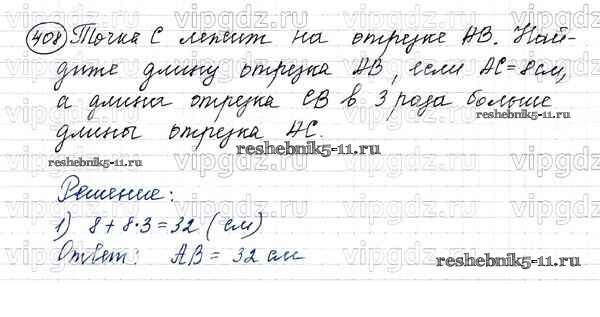 408 Точка С лежит на отрезке АВ. Най-
дите длину отрезка АВ, если АС=8см,
а длина отрезка СВ в 3 раза больше
длины отрезка АС.
reshebnik5-11.ru
reshebnik5-11.ru
reshebnik5-11.ru
Решение:
1) 8+8·3=32 (см)
Ответ: АВ = 32 см
reshebnik5-11.ru
vipgdz